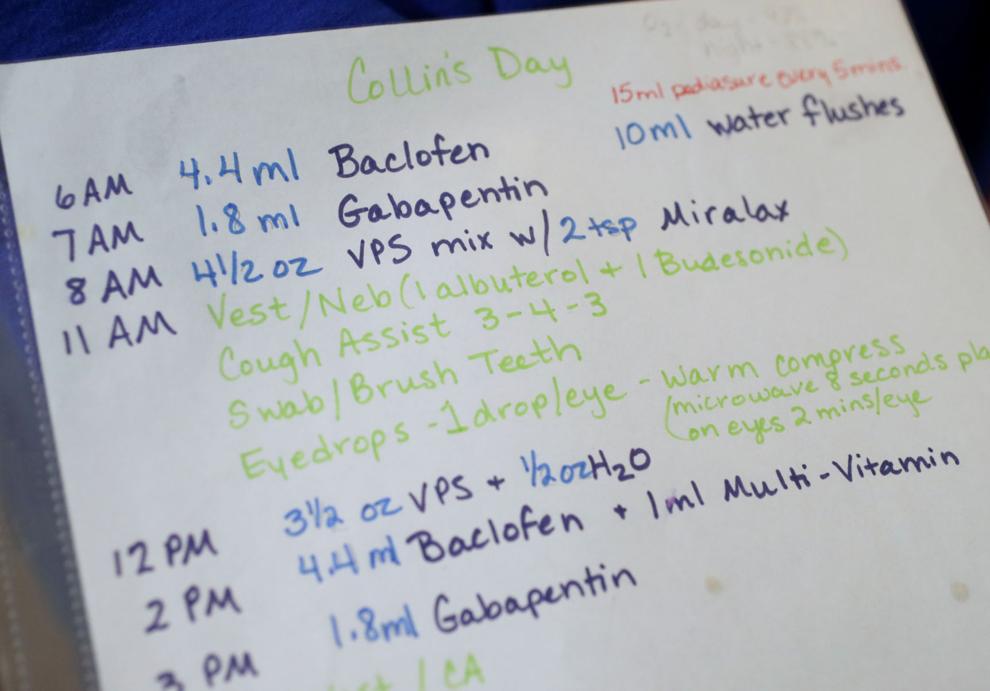 O2 - day -
night -
Collin's Day
15ml pediasure every 5mins.
10ml water flushes
6 AM 4.4 ml Baclofen
7 AM 1.8 ml Gabapentin
8 AM 4 1/2 oz VPS mix w/ 2 tsp Miralax
11 AM Vest/Neb (1 albuterol + 1 Budesonide)
Cough Assist 3-4-3
Swab/Brush Teeth
Eyedrops - 1 drop/eye - warm compress
(microwave 8 seconds
on eyes 2 mins/eye
12 PM 3 1/2 oz VPS + 1/2 oz H2O
2 PM 4.4 ml Baclofen + 1 ml Multi-Vitamin
3 PM 1.8ml Gabapentin
/ CA